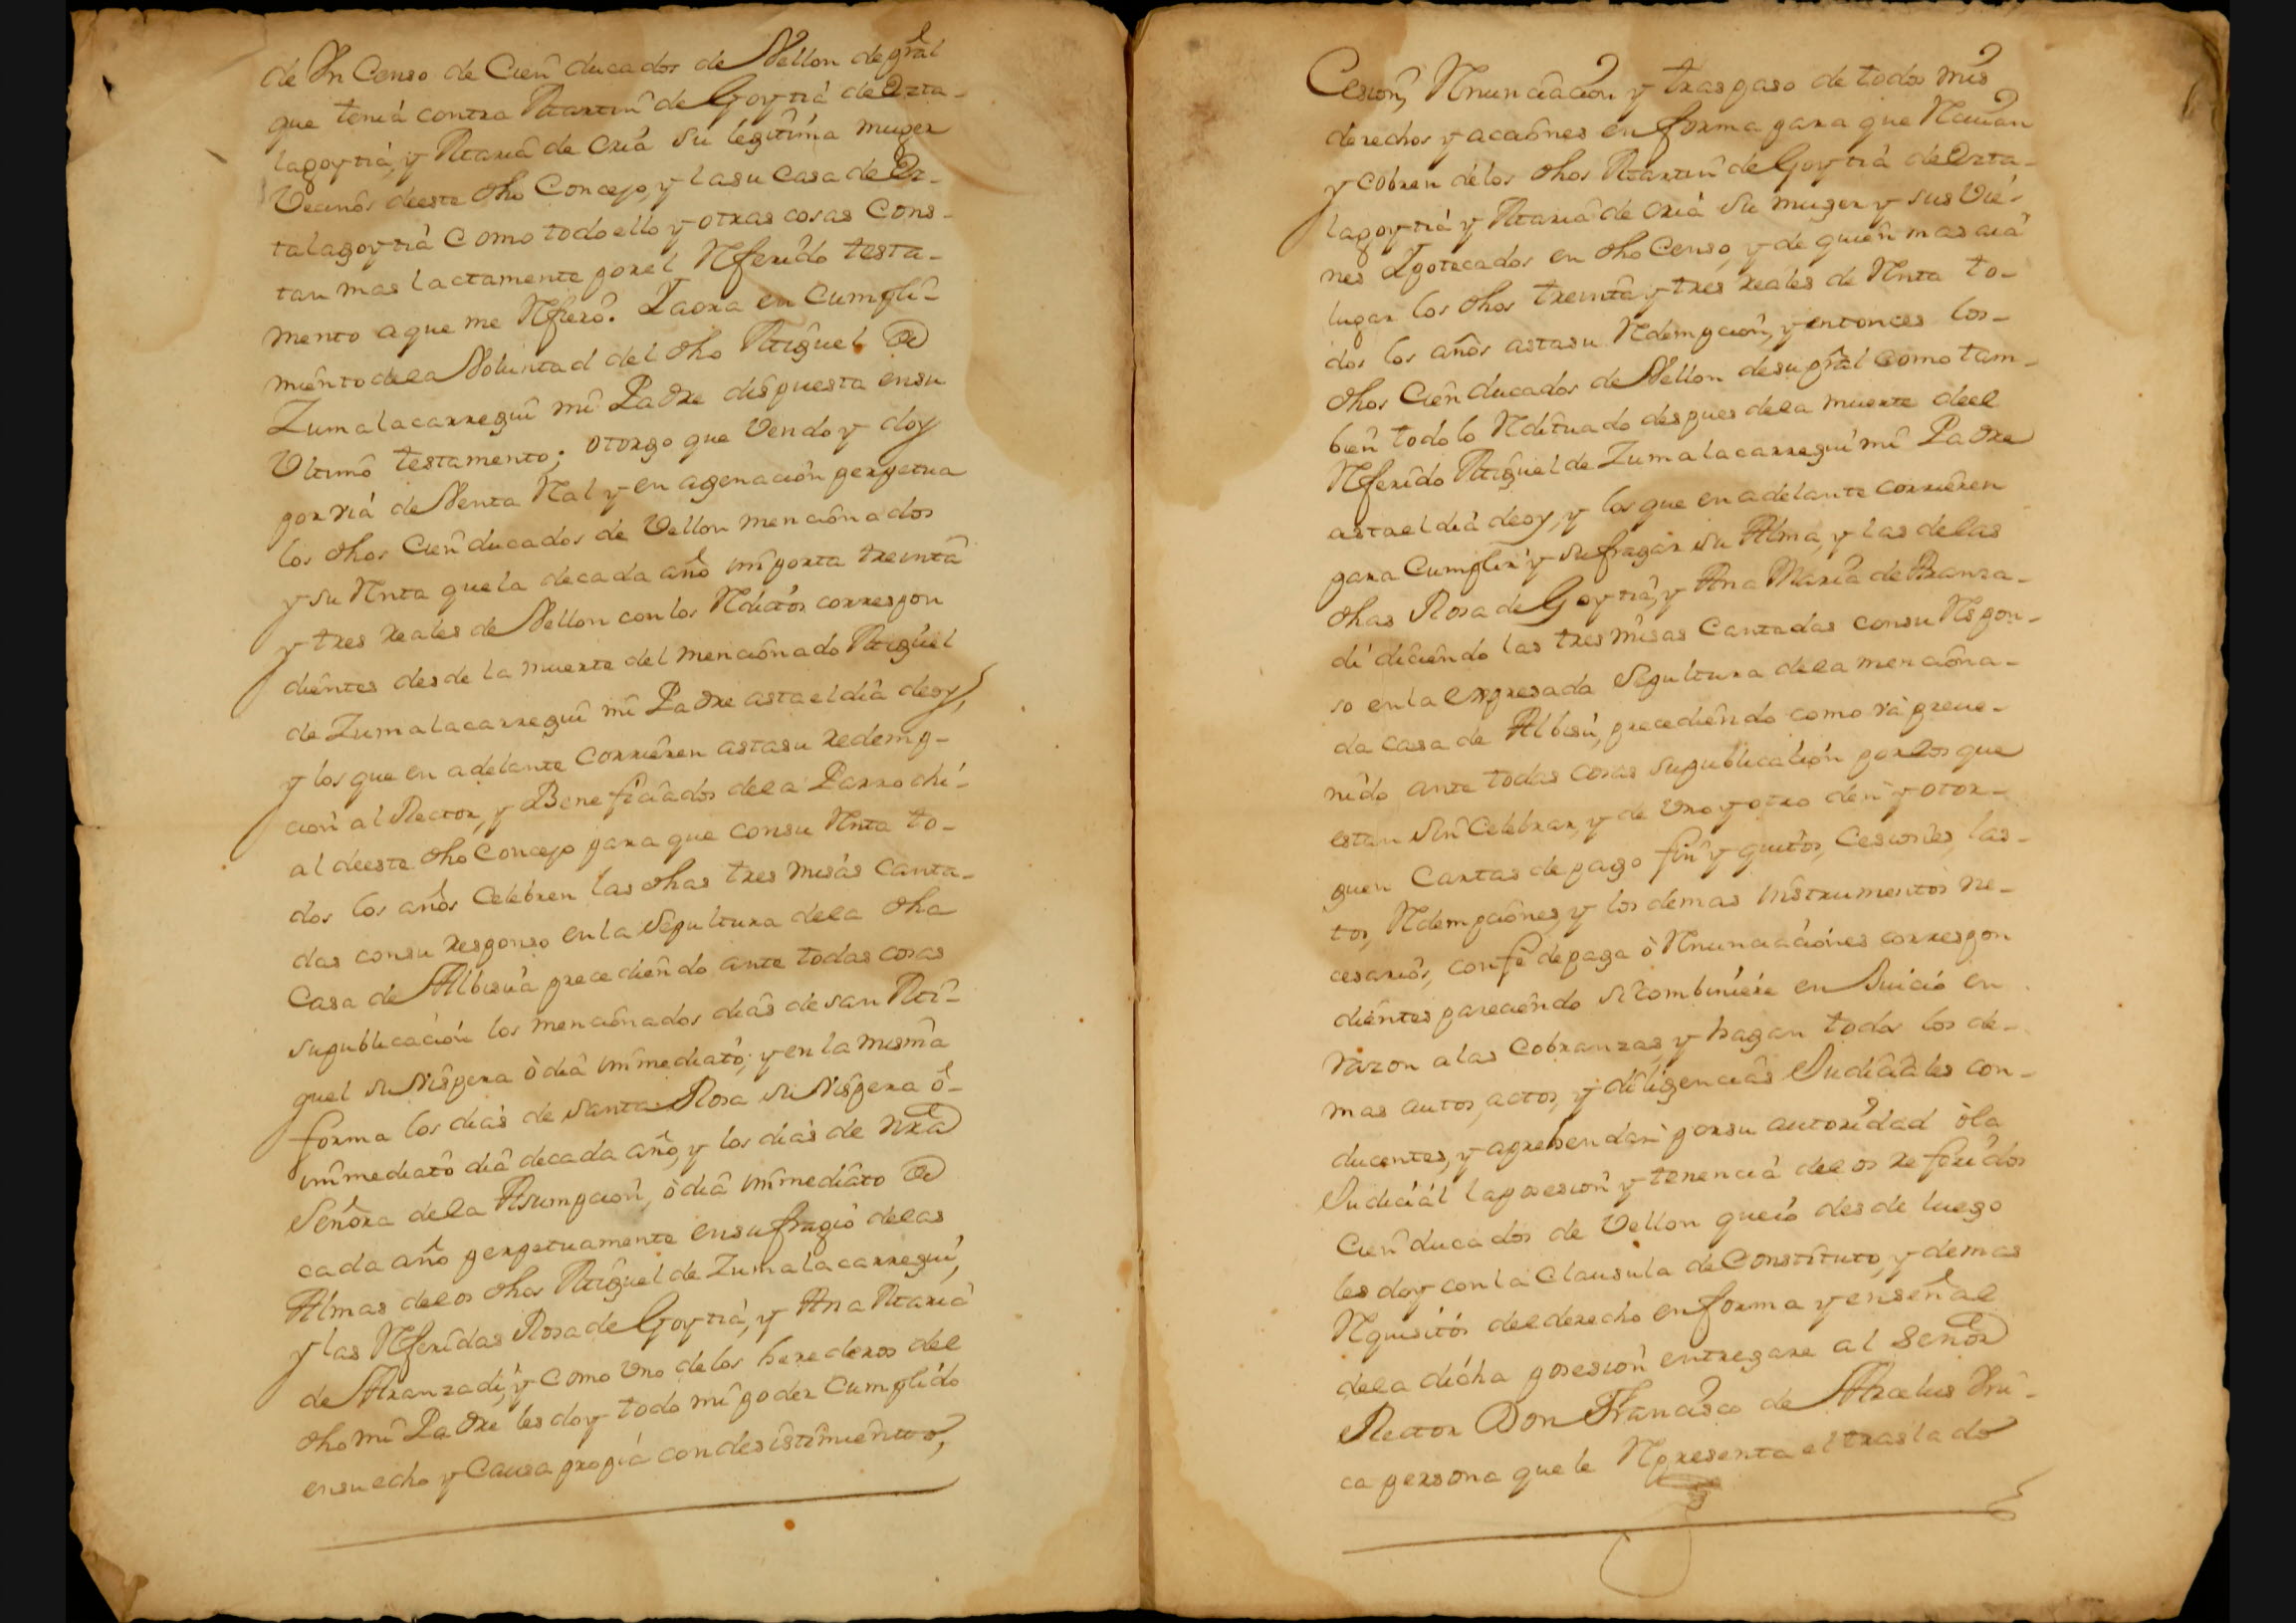 de Vn Censo de Cien ducados de Vellon de pral
que tenia contra Martin de Goytia de Orta-
lagoytia, y Maria de Oria su legitima muger
Vecinos deeste dho Concejo, y lasu Casa de Or-
talagoytia Como todo ello y otras cosas Cons-
tan mas lactamente por el Rferido testa-
mento a que me Rfiero. Yaora en Cumpli-
miento dela Voluntad del dho Miguel de
Zumalacarregui mi Padre dispuesta ensu
Vltimo testamento; otorgo que Vendo y doy
por via de Venta Ral y en agenacion perpetua
los dhos Cien ducados de Vellon mencionados
y su Rnta que la decada año importa treinta
y tres reales de Vellon con los Rditos correspon
dientes desde la muerte del mencionado Miguel
de Zumalacarregui mi Padre asta el dia deoy,
y los que en adelante Corrieren astasu redemp-
cion al Rector, y Beneficiados dela Parrochi-
al deeste dho Concejo para que consu Rnta to-
dos los años Celebren las dhas tres misas Canta-
das consu responso en la Sepultura dela dha
Casa de Albisua precediendo ante todas cosas
supublicacion los mencionados dias de san Mi-
guel su Vispera ò dia immediato; y en la misma
forma los dias de Santa Rosa su Vispera ô-
immediato dia decada año, y los dias de nra
Señora dela Asumpcion, ò dia immediato de
cada año perpetuamente ensufragio delas
Almas delos dhos Miguel de Zumalacarregui,
y las Rferidas Rosa de Goytia, y Ana Maria
de Aranzadi, y Como Vno delos herederos del
dho mi Padre les doy todo mi poder Cumplido
ensu echo y Causa propia con desistimiento,
Cesion, Rnunciacion y traspaso de todos mis
derechos y acciones en forma para que Rciuan
y cobren delos dhos Martin de Goytia de Orta-
lagoytia y Maria de Oria su muger y sus Vie-
nes Ypotecados en dho Censo, y de quien mas aia
lugar los dhos treinta y tres reales de Rnta to-
dos los años astasu Rdempcion, y entonces los-
dhos Cien ducados de Vellon desu pral como tam-
bien todo lo Rdituado despues dela muerte deel
Rferido Miguel de Zumalacarregui mi Padre
asta el dia deoy, y los que en adelante corrieren
para Cumplir y sufragar su Alma, y las delas
dhas Rosa de Goytia, y Ana Maria de Aranza-
di diciendo las tres misas Cantadas consu Rspon-
so en la Expresada Sepultura dela menciona-
da casa de Albisu, precediendo como va preue-
nido ante todas cosas supublicacion por los que
estan sin Celebrar, y de Vno y otro den y otor-
guen Cartas de pago fin y quito, Cesiones, las-
tos, Rdempciones, y los demas instrumentos ne-
cesarios, con fe de paga ò Rnunciaciones correspon
dientes pareciendo si combiniere en Juicio en
razon alas Cobranzas, y hagan todos los de-
mas autos, actos, y diligencias Judiciales con-
ducentes, y aprehendan por su autoridad òla
Judicial laposesion y tenencia delos referidos
Cien ducados de Vellon queio desde luego
les doy con la Clausula de Constituto, y demas
Rquisitos deel derecho en forma y enseñal
dela dicha posesion entregare al Señor
Rector Don Francisco de Arcelus Vni-
ca persona que le Rpresenta el traslado